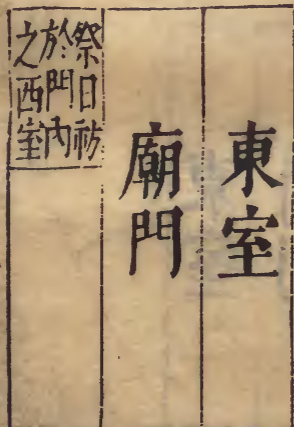 東室
廟門
祭日祊
於門內
之西室